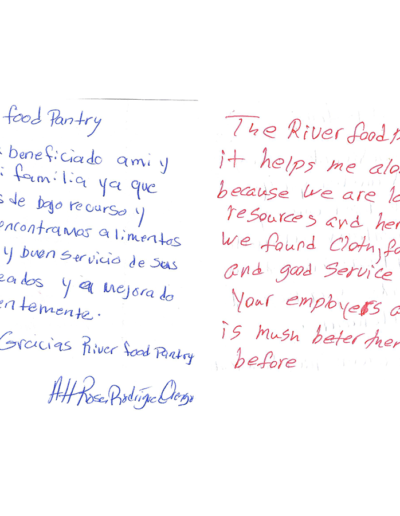 food Pantry
beneficiado ami y
i familia ya que
s de bajo recurso y
encontramas alimentos
y buen servicio de sus
eados y a mejorado
entemente.
Gracias River food Pantry
Att Rosa
The River food P
it helps me alo
because we are lo
resources and her
we found Cloth, fo
and good service
Your employers a
is mush beter then
before